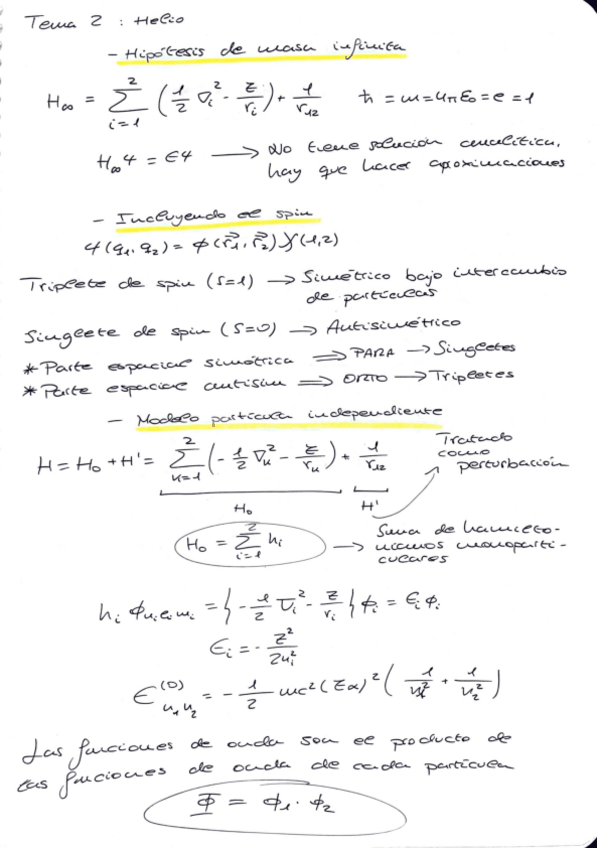 Tema 2 : Helio
- Hipótesis de masa infinita
H∞ = Σ_{i=1}^{2} (½ ∇_i² - Z/r_i) + 1/r₁₂   ħ = m = 4πε₀ = e = 1
H∞ψ = Eψ ⟶ No tiene solución analítica,
hay que hacer aproximaciones
- Incluyendo el spin
ψ(q₁, q₂) = ϕ(r⃗₁, r⃗₂) χ(1,2)
Triplete de spin (S=1) → Simétrico bajo intercambio
de partículas
Singlete de spin (S=0) → Antisimétrico
* Parte espacial simétrica ⟹ PARA → Singletes
* Parte espacial antisim ⟹ ORTO → Tripletes
- Modelo partícula independiente
H = H₀ + H' = Σ_{k=1}^{2} (-½ ∇_k² - Z/r_k) + 1/r₁₂
Tratado
como
perturbación
H₀   H'
H₀ = Σ_{i=1}^{2} h_i ⟶ Suma de hamilto-
nianos monoparti-
culares
h_i ϕ_{n_i l_i m_i} = {-½ ∇_i² - Z/r_i} ϕ_i = ϵ_i ϕ_i
ϵ_i = - Z²/2n_i²
E^{(0)}_{n₁n₂} = -½ mc² (Zα)² (1/n₁² + 1/n₂²)
Las funciones de onda son el producto de
las funciones de onda de cada partícula
Φ = ϕ₁ · ϕ₂